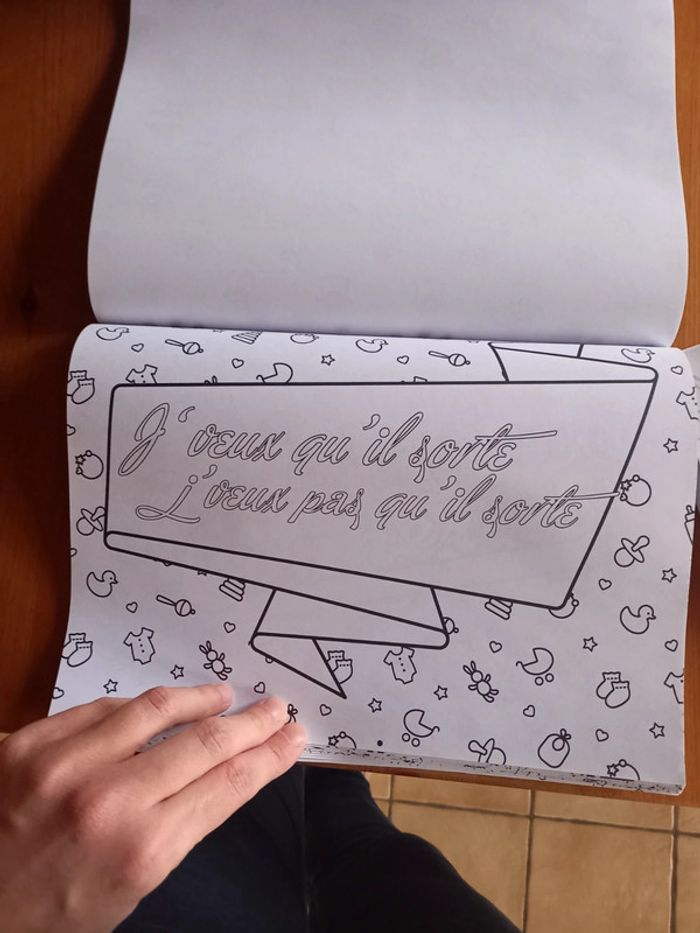 J'veux qu'il sorte
j'veux pas qu'il sorte